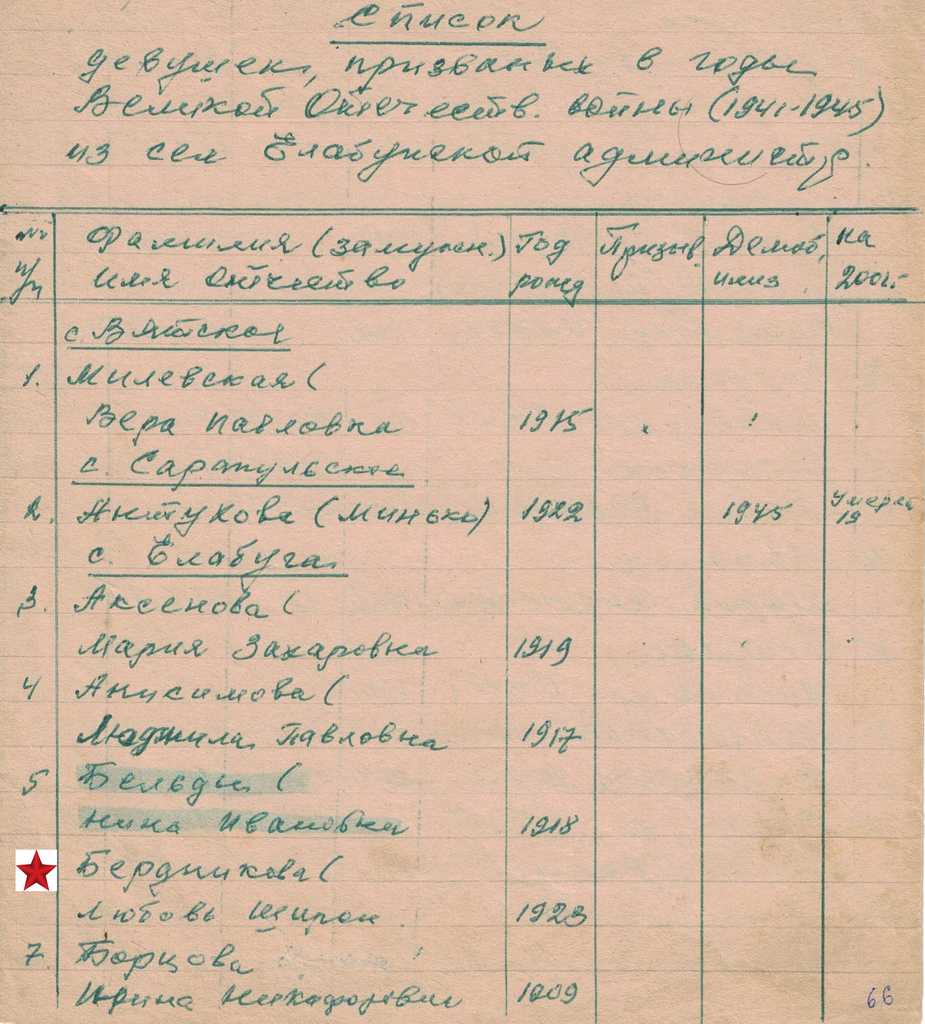 Список
девушек, призваных в годы
Великой Отечеств. войны (1941-1945)
из сел Елабужской администр.
№№ Фамилия (замужн.) Год Призыв. Демоб. на
п/п имя отчество рожд илиз 200г.
с. Вятское
1. Милевская (
Вера Павловна 1915
с. Сарапульское
2. Антухова (Минько) 1922 1945 умерла 19
с. Елабуга
3. Аксенова (
Мария Захаровна 1919
4 Анисимова (
Людмила Павловна 1917
5 Бельды (
Нина Ивановна 1918
Бердникова (
Любовь 1923
7. Борцова
Ирина Никифоровна 1909
66